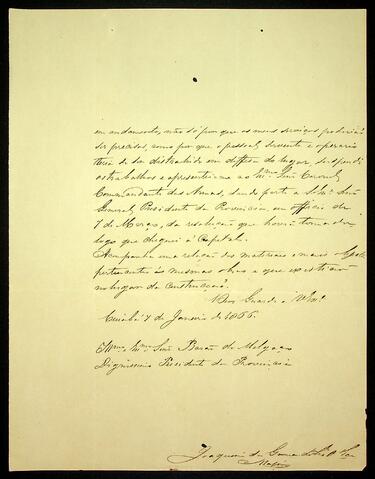 em andamento, não só por que os meus serviços podiam
ser precisos, como por que o pessoal, servente e operario
teria de ser distrahido em diffesa do lugar, suspendi
os trabalhos e apresentei-me ao Illmo Senr Coronel
Commandante das Armas, dando parte a Exmo Senr
General Presidente da Provincia, em officio de
7 de Março, da resolução que havia tomado
logo que cheguei á Capital.
Acompanha uma relação dos materiaes e mais
pertencentes ás mesmas obras e que existiam
no lugar da construcção.
Deos Guarde a V.Exa.
Cuiabá 7 de Janeiro de 1866.
Illmo Exmo Senr Barão de Melgaço
Dignissimo Presidente da Provincia
Joaquim da Gama
Major